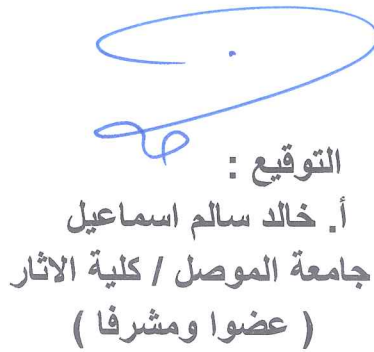 التوقيع :
أ. خالد سالم اسماعيل
جامعة الموصل / كلية الاثار
( عضوا ومشرفا )